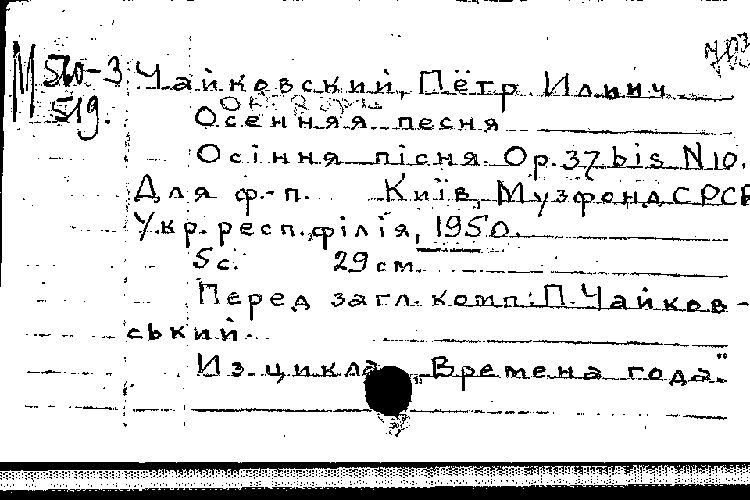 М 510-3 Чайковский, Пётр Илич
519.
Октябрь
Осенняя песня
Осіння пісня. Op. 37 bis N 10.
Для ф.-п. Київ, Музфонд СРСР
Укр. респ. філія, 1950.
5 с. 29 см.
Перед загл. комп: П. Чайков-
ський.
Из цикла "Времена года"